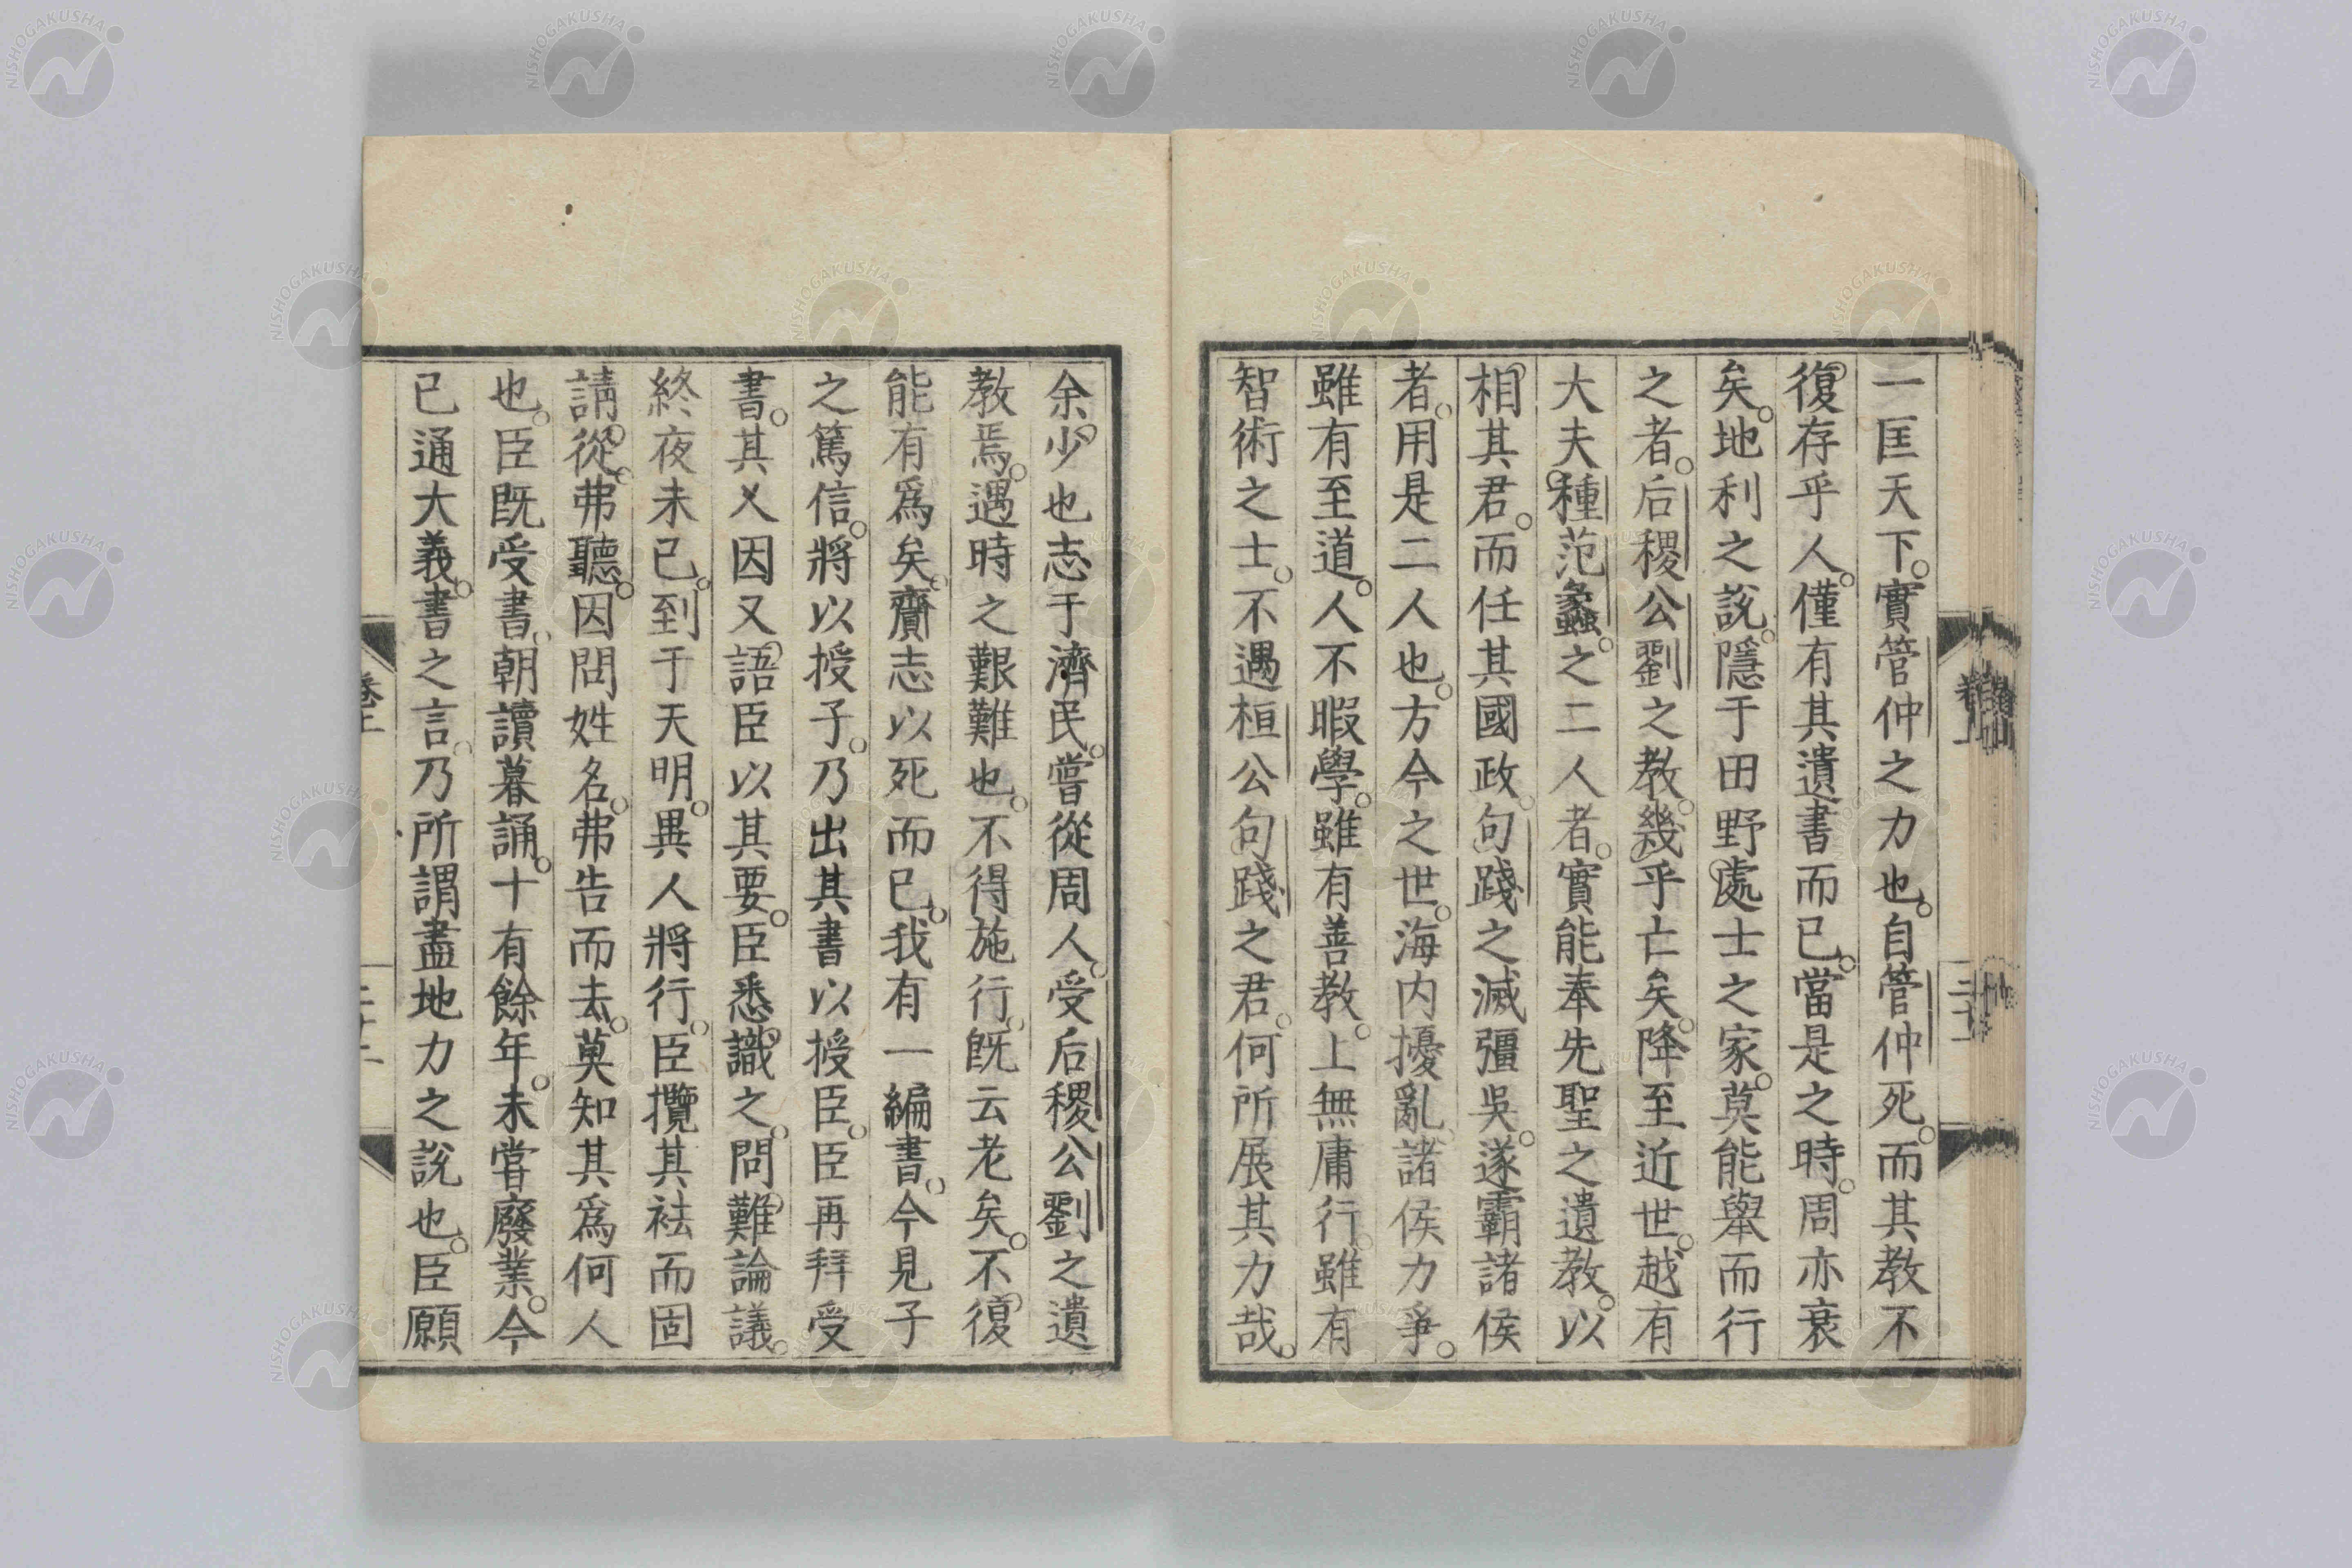 一匡天下。實管仲之力也。自管仲死。而其教不
復存乎人。僅有其遺書而已。當是之時。周亦衰
矣。地利之說。隱于田野處士之家。莫能舉而行
之者。后稷公劉之教。幾乎亡矣。降至近世。越有
大夫種范蠡。之二人者。實能奉先聖之遺教。以
相其君。而任其國政。句踐之滅彊吳。遂霸諸侯
者。用是二人也。方今之世。海内擾亂。諸侯力爭。
雖有至道。人不暇學。雖有善教。上無庸行。雖有
智術之士。不遇桓公句踐之君。何所展其力哉。
余少也志于濟民。嘗從周人。受后稷公劉之遺
教焉。遇時之艱難也。不得施行。既云老矣。不復
能有爲矣。齎志以死而已。我有一編書。今見子
之篤信。將以授子。乃出其書以授臣。臣再拜受
書。其乂因又語臣以其要。臣悉識之。問難論議。
終夜未已。到于天明。異人將行。臣攬其袪而固
請從。弗聽。因問姓名。弗告而去。莫知其爲何人
也。臣既受書。朝讀暮誦。十有餘年。未嘗廢業。今
已通大義。書之言。乃所謂盡地力之說也。臣願
卷上
NISHOGAKUSHA